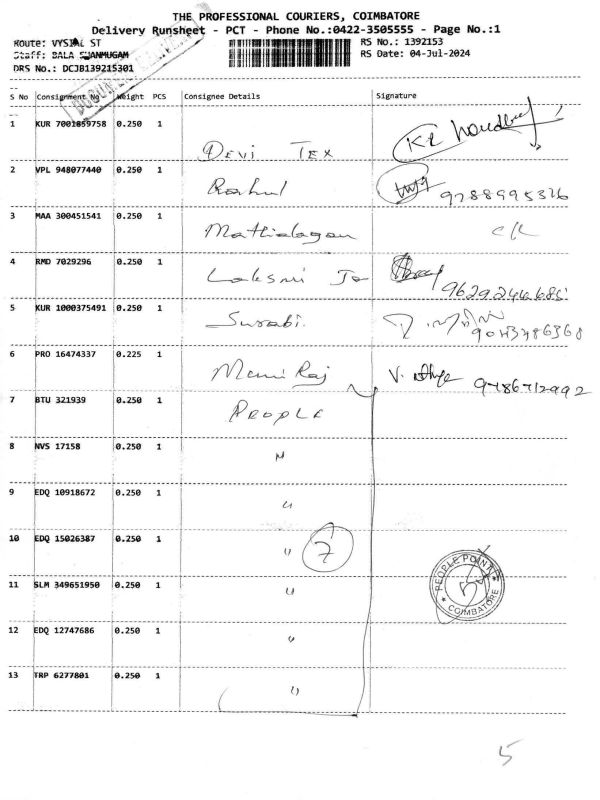 THE PROFESSIONAL COURIERS, COIMBATORE
Delivery Runsheet - PCT - Phone No.:0422-3505555 - Page No.:1
Route: VYSIAL ST
RS No.: 1392153
Staff: BALA SHANMUGAM
RS Date: 04-Jul-2024
DRS No.: DCJB139215301
S No Consignment No Weight PCS Consignee Details Signature
1 KUR 7001859758 0.250 1 DEVI TEX
2 VPL 948077440 0.250 1 Rahul 9788995326
3 MAA 300451541 0.250 1 Mathialagan
4 RMD 7029296 0.250 1 Laksmi
5 KUR 1000375491 0.250 1 Surabi.
6 PRO 16474337 0.225 1 Mani Raj 9786712992
7 BTU 321939 0.250 1 PEOPLE
8 NVS 17158 0.250 1 "
9 EDQ 10918672 0.250 1 "
10 EDQ 15026387 0.250 1 " 7
11 SLM 349651950 0.250 1 "
PEOPLE POINT
COIMBATORE
12 EDQ 12747686 0.250 1 "
13 TRP 6277801 0.250 1 "
5